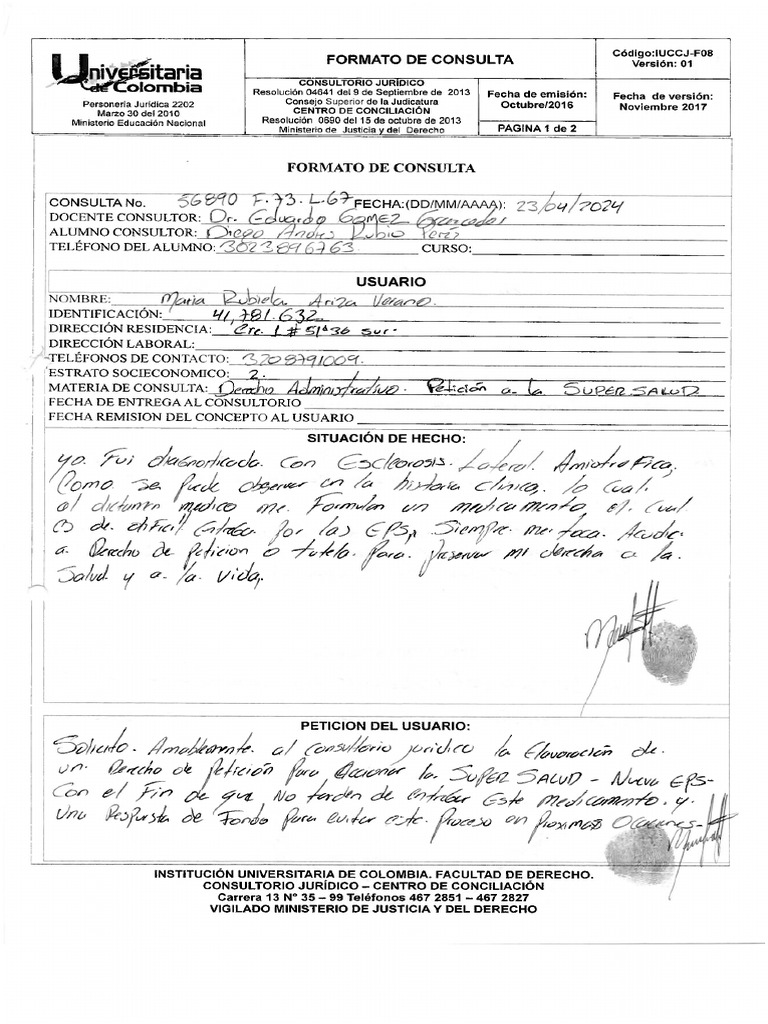 Universitaria
de Colombia
Personería Jurídica 2202
Marzo 30 del 2010
Ministerio Educación Nacional
FORMATO DE CONSULTA
CONSULTORIO JURÍDICO
Resolución 04641 del 9 de Septiembre de 2013
Consejo Superior de la Judicatura
CENTRO DE CONCILIACIÓN
Resolución 0690 del 15 de octubre de 2013
Ministerio de Justicia y del Derecho
Fecha de emisión:
Octubre/2016
PAGINA 1 de 2
Código:IUCCJ-F08
Versión: 01
Fecha de versión:
Noviembre 2017
FORMATO DE CONSULTA
CONSULTA No. 56890 F.73.L.67 FECHA:(DD/MM/AAAA): 23/04/2024
DOCENTE CONSULTOR: Dr. Eduardo GOMEZ Granados
ALUMNO CONSULTOR: Diego Andres Rubio Perez
TELÉFONO DEL ALUMNO: 3023896763 CURSO:
USUARIO
NOMBRE: Maria Rubiela Ariza Verano.
IDENTIFICACIÓN: 41,781.632
DIRECCIÓN RESIDENCIA: Cre. 1 # 51ª36 sur.
DIRECCIÓN LABORAL:
TELÉFONOS DE CONTACTO: 3208791009.
ESTRATO SOCIECONOMICO: 2.
MATERIA DE CONSULTA: Derecho Administrativo. Petición a la SUPER SALUD
FECHA DE ENTREGA AL CONSULTORIO
FECHA REMISION DEL CONCEPTO AL USUARIO
SITUACIÓN DE HECHO:
yo. Fui diagnosticada. con Esclearosis. Lateral. Amiotrofica,
Como se puede observar en la historia clinica, lo cual.
al dictamen medico me. Formulan un medicamento, el cual
es de. dificil entrega. por las EPS, Siempre me toca. Acudir
a. Derecho de Peticion o tutela. Para. preservar mi derecha a la.
Salud y a la. vida,
PETICION DEL USUARIO:
Solicito. Amablemente. al consultorio juridico la Elavoración de.
un. Derecho de Petición Para Accionar la SUPER SALUD - Nueva EPS-
Con el Fin de que No tarden de entregar Este medicamento. y.
Una Respusta de Fondo Para evitar este. Proceso en Proximas Ocaciones-
INSTITUCIÓN UNIVERSITARIA DE COLOMBIA. FACULTAD DE DERECHO.
CONSULTORIO JURÍDICO – CENTRO DE CONCILIACIÓN
Carrera 13 N° 35 – 99 Teléfonos 467 2851 – 467 2827
VIGILADO MINISTERIO DE JUSTICIA Y DEL DERECHO